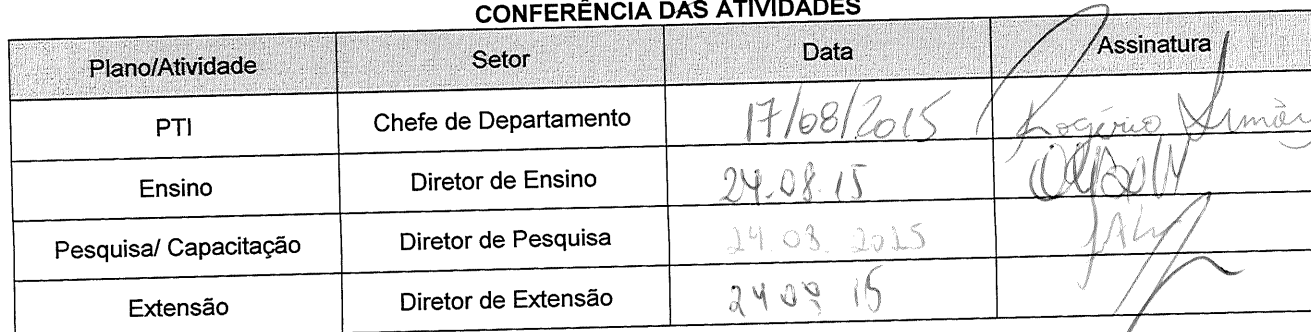 CONFERÊNCIA DAS ATIVIDADES
Plano/Atividade Setor Data Assinatura
PTI Chefe de Departamento 17/08/2015 Rogério
Ensino Diretor de Ensino 24.08.15
Pesquisa/ Capacitação Diretor de Pesquisa 24.08.2015
Extensão Diretor de Extensão 24 08 15